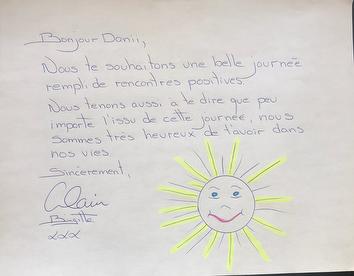 Bonjour Danii,
Nous te souhaitons une belle journée
rempli de rencontres positives.
Nous tenons aussi à te dire que peu
importe l'issu de cette journée, nous
sommes très heureux de t'avoir dans
nos vies.
Sincèrement,
Alain
Brigitte
xxx